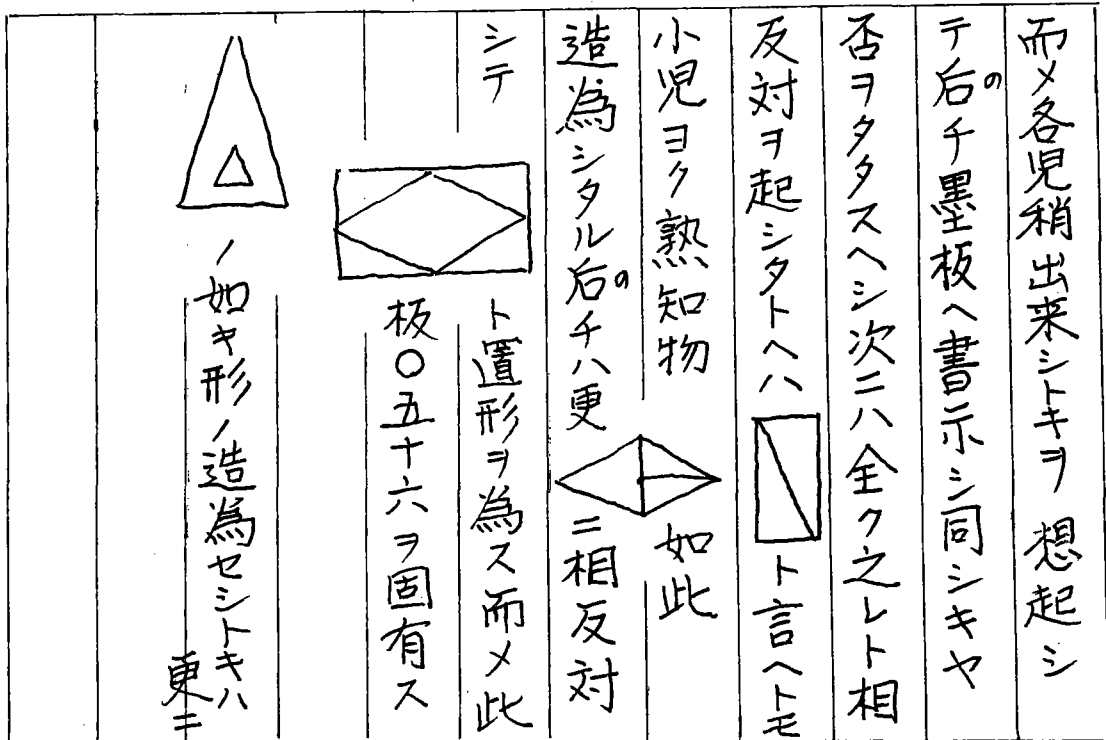 而メ各児稍出来シトキヲ 想起シ
テ后のチ墨板ヘ書示シ同シキヤ
否ヲタタスヘシ次ニハ全ク之レト相
反対ヲ起シタトヘハ ト言ヘトモ
小児ヨク熟知物 如此
造為シタル后のチハ更 ニ相反対
シテ ト置形ヲ為ス而メ此
板〇五十六ヲ固有ス
ノ如キ形ノ造為セシトキハ
更ニ